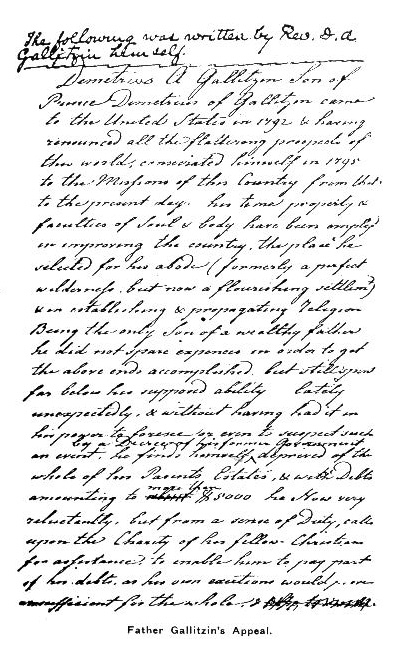 The following was written by Rev. D. A
Gallitzin himself.
Demetrius A Gallitzin Son of
Prince Demetrius of Gallitzin came
to the United States in 1792 & having
renounced all the flattering prospects of
this world, consecrated himself in 1795
to the Missions of this Country from that
to the present day. his time property &
faculties of Soul & body have been employd
in improving the country, the place he
selected for his abode (formerly a perfect
wilderness. but now a flourishing settlemt)
& in establishing & propagating Religion
Being the only Son of a wealthy father
he did not spare expences in order to get
the above ends accomplished. but still
far below his supposed ability lately
unexpectedly, & without having had it in
his power to foresee or even to suspect such
by a Decree of his former Government
an event, he finds himself deprived of the
whole of his Parents Estates, & with Debts
more than
amounting to about $5000 he Now very
reluctantly, but from a sense of Duty, calls
upon the Charity of his fellow Christians
for assistance to enable him to pay part
of his debts, as his own exertions would
insufficient for the whole
Father Gallitzin's Appeal.